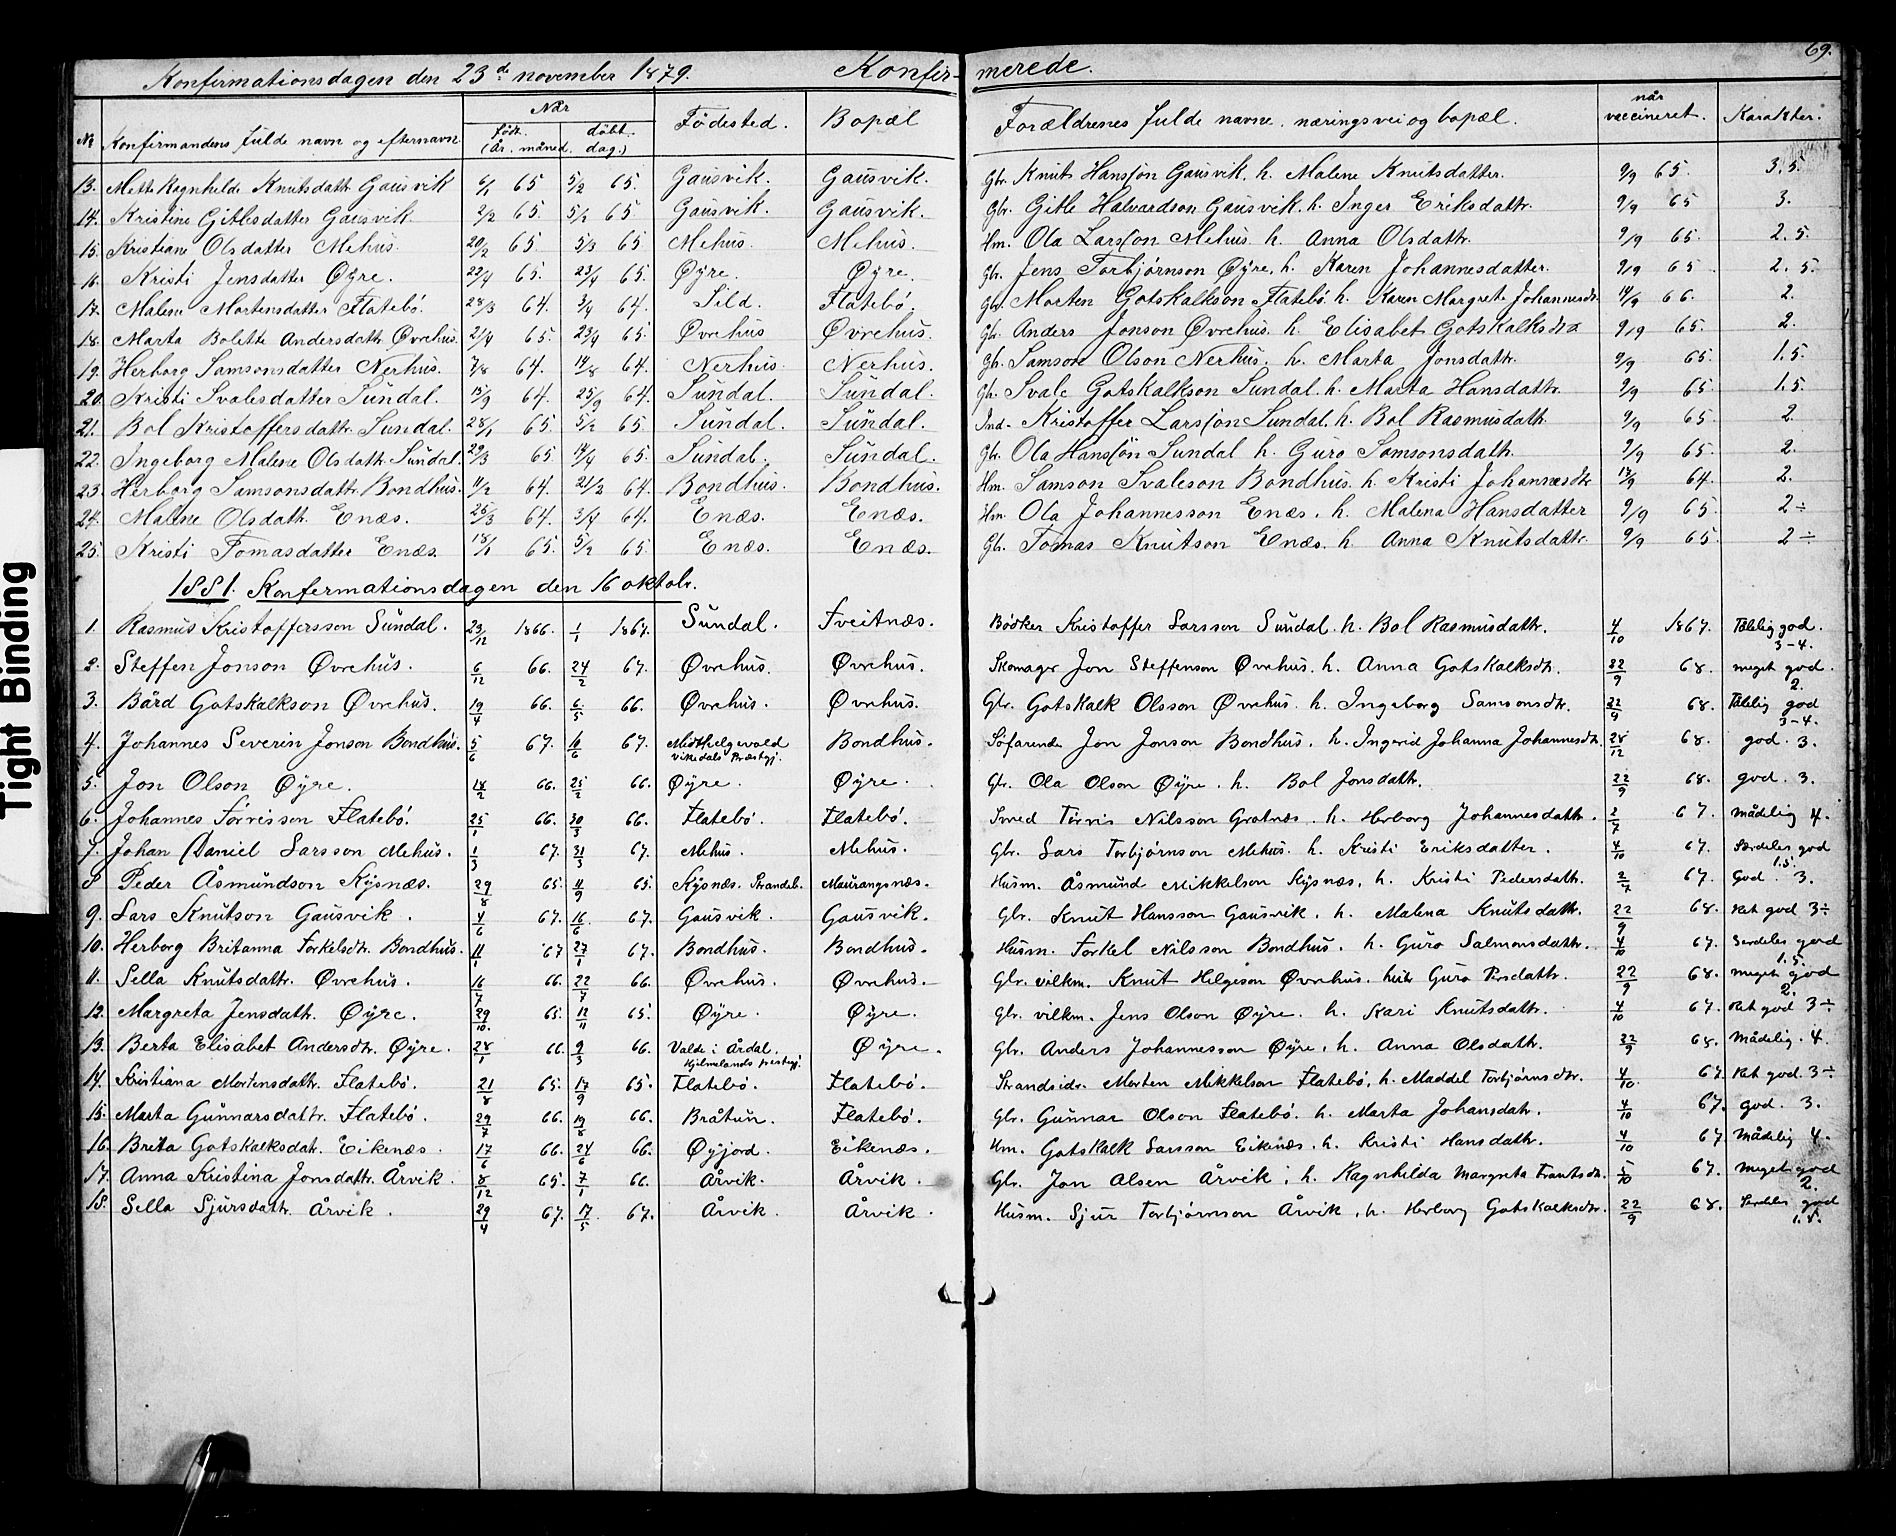 69.
Konfirmationsdagen den 23de november 1879. Konfir- merede.
No Konfirmandens fulde navn og efternavn Når født. døbt. (År. måned. dag.) Fødested. Bopæl Forældrenes fulde navne, næringsvei og bopæl. når vaccineret. Karakter.
13. Mette Ragnhilde Knutsdattr Gausvik 6/1 65 5/2 65. Gausvik. Gausvik. Gbr. Knut Hansson Gausvik. h. Malene Knutsdatter. 9/9 65. 3.5.
14. Kristine Gitlesdatter Gausvik 2/2 65. 5/2 65 Gausvik. Gausvik. Gbr. Gitle Halvardson Gausvik. h. Inger Eriksdattr. 9/9 65 3.
15. Kristiane Olsdatter Mehus. 20/2 65 5/3 65 Mehus. Mehus. Hm. Ola Larsson Mehus h. Anna Olsdattr. 9/9 65. 2.5.
16. Kristi Jensdatter Øyre. 22/4 65. 23/4 65. Øyre. Øyre. Gbr. Jens Torbjørnson Øyre, h. Karen Johannesdatter. 9/9 65 2.5.
17. Malene Mortensdatter Flatebø. 28/3 64. 3/4 64. Sild. Flatebø. Gbr. Morten Gotskalkson Flatebø h. Karen Margrete Johannesdr. 14/9 66. 2.
18. Marta Bolette Andersdattr Øvrehus. 21/4 65. 23/4 65. Øvrehus Øvrehus. Gbr. Anders Jonson Øvrehus. h. Elisabet Gotskalksdtr 9/9 65. 2.
19. Herborg Samsonsdatter Nerhus. 7/8 64. 14/8 64. Nerhus. Nerhus. Gb. Samson Olson Nerhus. h. Marta Jonsdattr. 9/9 65. 1.5.
20. Kristi Svalesdatter Sundal. 15/9 64. 25/9 64. Sundal. Sundal. Gb. Svale Gotskalkson Sundal. h. Marta Hansdattr. 9/9 65. 1.5.
21. Bol Kristoffersdattr. Sundal. 28/1 65. 5/2 65. Sundal. Sundal. Ind. Kristoffer Larsson Sundal. h. Bol Rasmusdattr. 9/9 65. 2.
22. Ingeborg Malene Olsdattr. Sundal. 29/3 65. 14/4 65. Sundal. Sundal. Gbr. Ola Hansson Sundal h. Guro Samsonsdattr. 9/9 65. 2.
23. Herborg Samsonsdattr. Bondhus. 11/2 64. 21/2 64. Bondhus. Bondhus. Hm. Samson Svaleson Bondhus. h. Kristi Johannesdtr 13/9 64. 2.
24. Malene Olsdattr. Enæs. 25/3 64. 3/4 64. Enæs. Enæs. Hm. Ola Johannesson Enæs. h. Malena Hansdatter 9/9 65. 2÷
25. Kristi Tomasdatter Enæs. 18/1 65. 5/2 65. Enæs. Enæs. Gb. Tomas Knutson Enæs. h. Anna Knutsdattr. 9/9 65. 2÷
1881. Konfermationsdagen den 16 oktobr.
1. Rasmus Kristoffersson Sundal. 23/12 1866. 1/1 1867. Sundal. Tveitnæs. Bødker Kristoffer Larsson Sundal. h. Bol Rasmusdattr. 4/10 1867. Tålelig god. 3-4.
2. Steffen Jonson Øvrehus. 6/12 66. 24/2 67. Øvrehus. Øvrehus. Skomagr Jon Steffenson Øvrehus. h. Anna Gotskalksdtr. 22/9 68. meget god. 2.
3. Bård Gotskalkson Øvrehus. 19/4 66. 6/5 66. Øvrehus. Øvrehus. Gbr. Gotskalk Olsson Øvrehus. h. Ingeborg Samsonsdtr. 22/9 68. Tålelig god 3-4.
4. Johannes Severin Jonson Bondhus. 5/6 67. 16/6 67. vikedals Præstgj. Bondhus. Søfarende Jon Jonson Bondhus. h. Ingerid Johanna Johannesdtr. 28/12 68. god. 3.
5. Jon Olson Øyre. 18/2 66. 25/2 66. Øyre. Øyre. Gbr. Ola Olson Øyre. h. Bol Jonsdattr. 22/9 68. god. 3.
6. Johannes Tørrisson Flatebø. 25/1 66. 30/3 66. Flatebø. Flatebø. Smed Tørris Nilsson Grotnæs. h. Herborg Johannesdattr. 2/7 67. Mådelig 4.
7. Johan Daniel Larsson Mehus. 1/3 67. 31/3 67. Mehus. Mehus. Gbr. Lars Torbjørnson Mehus. h. Kristi Eriksdatter. 4/10 67. Særdeles god 1.5.
8 Peder Åsmundson Kysnæs. 29/8 65. 11/9 65. Kysnæs. Strandeb. Maurangsnæs. Husm. Åsmund Mikkelson Kysnæs, h. Kristi Pedersdattr. 2/7 67. God. 3.
9. Lars Knutson Gausvik. 4/6 67. 16/6 67. Gausvik. Gausvik. Gbr. Knut Hansson Gausvik. h. Malena Knutsdattr. 22/9 68. Ret god 3÷
10. Herborg Britanna Torkelsdtr. Bondhus. 11/1 67 27/1 67. Bondhus. Bondhus. Husm. Torkel Nilsson Bondhus. h. Guro Salmonsdattr. 4/10 67. Serdeles god 1.5.
11. Sella Knutsdattr. Øvrehus. 16/7 66. 22/7 66. Øvrehus. Øvrehus. Gbr. vilkm. Knut Helgeson Øvrehus. hustr Guro Persdattr. 22/9 68. Meget god 2.
12. Margreta Jensdattr. Øyre. 29/10. 65. 12/11 65. Øyre. Øyre. Gbr. vilkm. Jens Olson Øyre. h. Kari Knutsdattr. 4/10 67. Ret god 3÷
13. Berta Elisabet Andersdtr. Øyre. 28/1 66. 9/3 66. Valde i Årdal. Hjelmelands prestgj. Øyre. Gbr. Anders Johannesson Øyre. h. Anna Olsdattr. 22/9 68. Mådelig. 4.
14. Kristiana Mortensdattr. Flatebø. 21/8 65. 17/9 65. Flatebø. Flatebø. Strandsidr. Morten Mikkelson Flatebø, h. Maddel Torbjørnsdtr. 4/10. 67. Ret god. 3÷
15. Marta Gunnarsdattr. Flatebø. 29/7 66. 19/8 66. Bråtun. Flatebø. Gbr. Gunnar Olson Flatebø. h. Marta Johansdatr. 4/10 67. god. 3.
16. Brita Gotskalksdatr. Eikenæs. 17/6 66. 24/6 66. Øyjord. Eikenæs. Hm. Gotskalk Larsson Eikenæs. h. Kristi Hansdattr. 4/10 67 Mådelig 4.
17. Anna Kristina Jonsdattr. Årvik. 8/12 65. 7/1 66. Årvik. Årvik. Gbr. Jon Olsen Årvik; h. Ragnhilda Margreta Trantsdr. 5/10 67. Meget god 2.
18. Sella Sjursdattr. Årvik. 29/4 67. 17/5 67. Årvik. Årvik. Husm. Sjur Torbjørnson Årvik, h. Herborg Gotskalksdtr. 22/9 68. Serdeles god 1.5.
Tight Binding